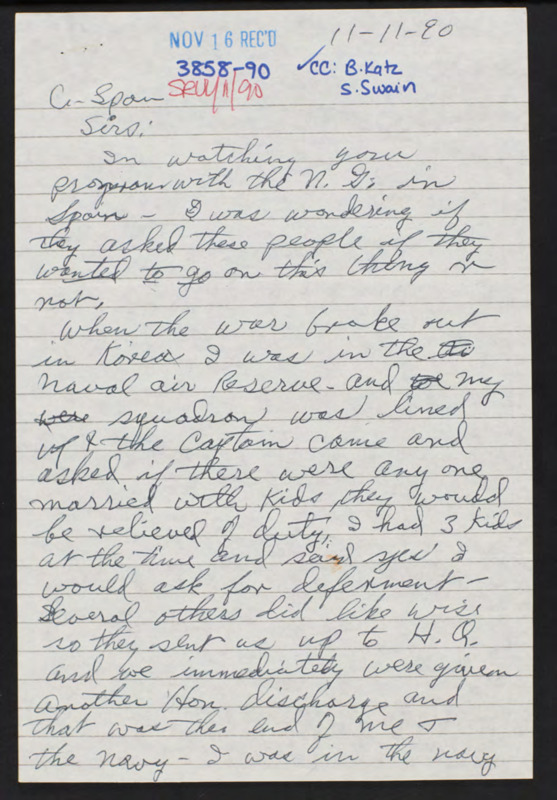 11-11-90
NOV 16 REC'D
3858-90 ✓CC: B. Katz
S. Swain
C-Span
Sirs:
In watching your
program with the N. G. in
Spain - I was wondering if
they asked these people if they
wanted to go on this thing or
not.
When the war broke out
in Korea I was in the
Naval air Reserve - and my
were squadron was lined
up & the Captain came and
asked if there were any one
married with Kids they would
be relieved of duty. I had 3 Kids
at the time and said yes I
would ask for deferment -
Several others did like wise
so they sent us up to H. Q.
and we immediately were given
another Hon. discharge and
that was the end of me &
the navy - I was in the navy